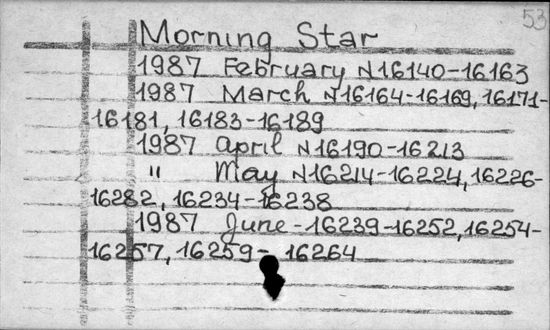 53
Morning Star
1987 February N16140-16163
1987 March N16164-16169, 16171-
16181, 16183-16189
1987 April N16190-16213
" May N16214-16224, 16226-
16282, 16234-16238
1987 June - 16239-16252, 16254-
16257, 16259- 16264